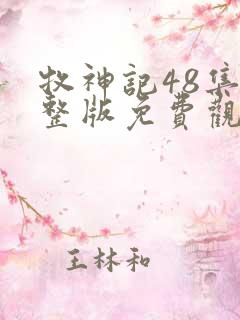 牧神記48集
整版免費觀
王林和